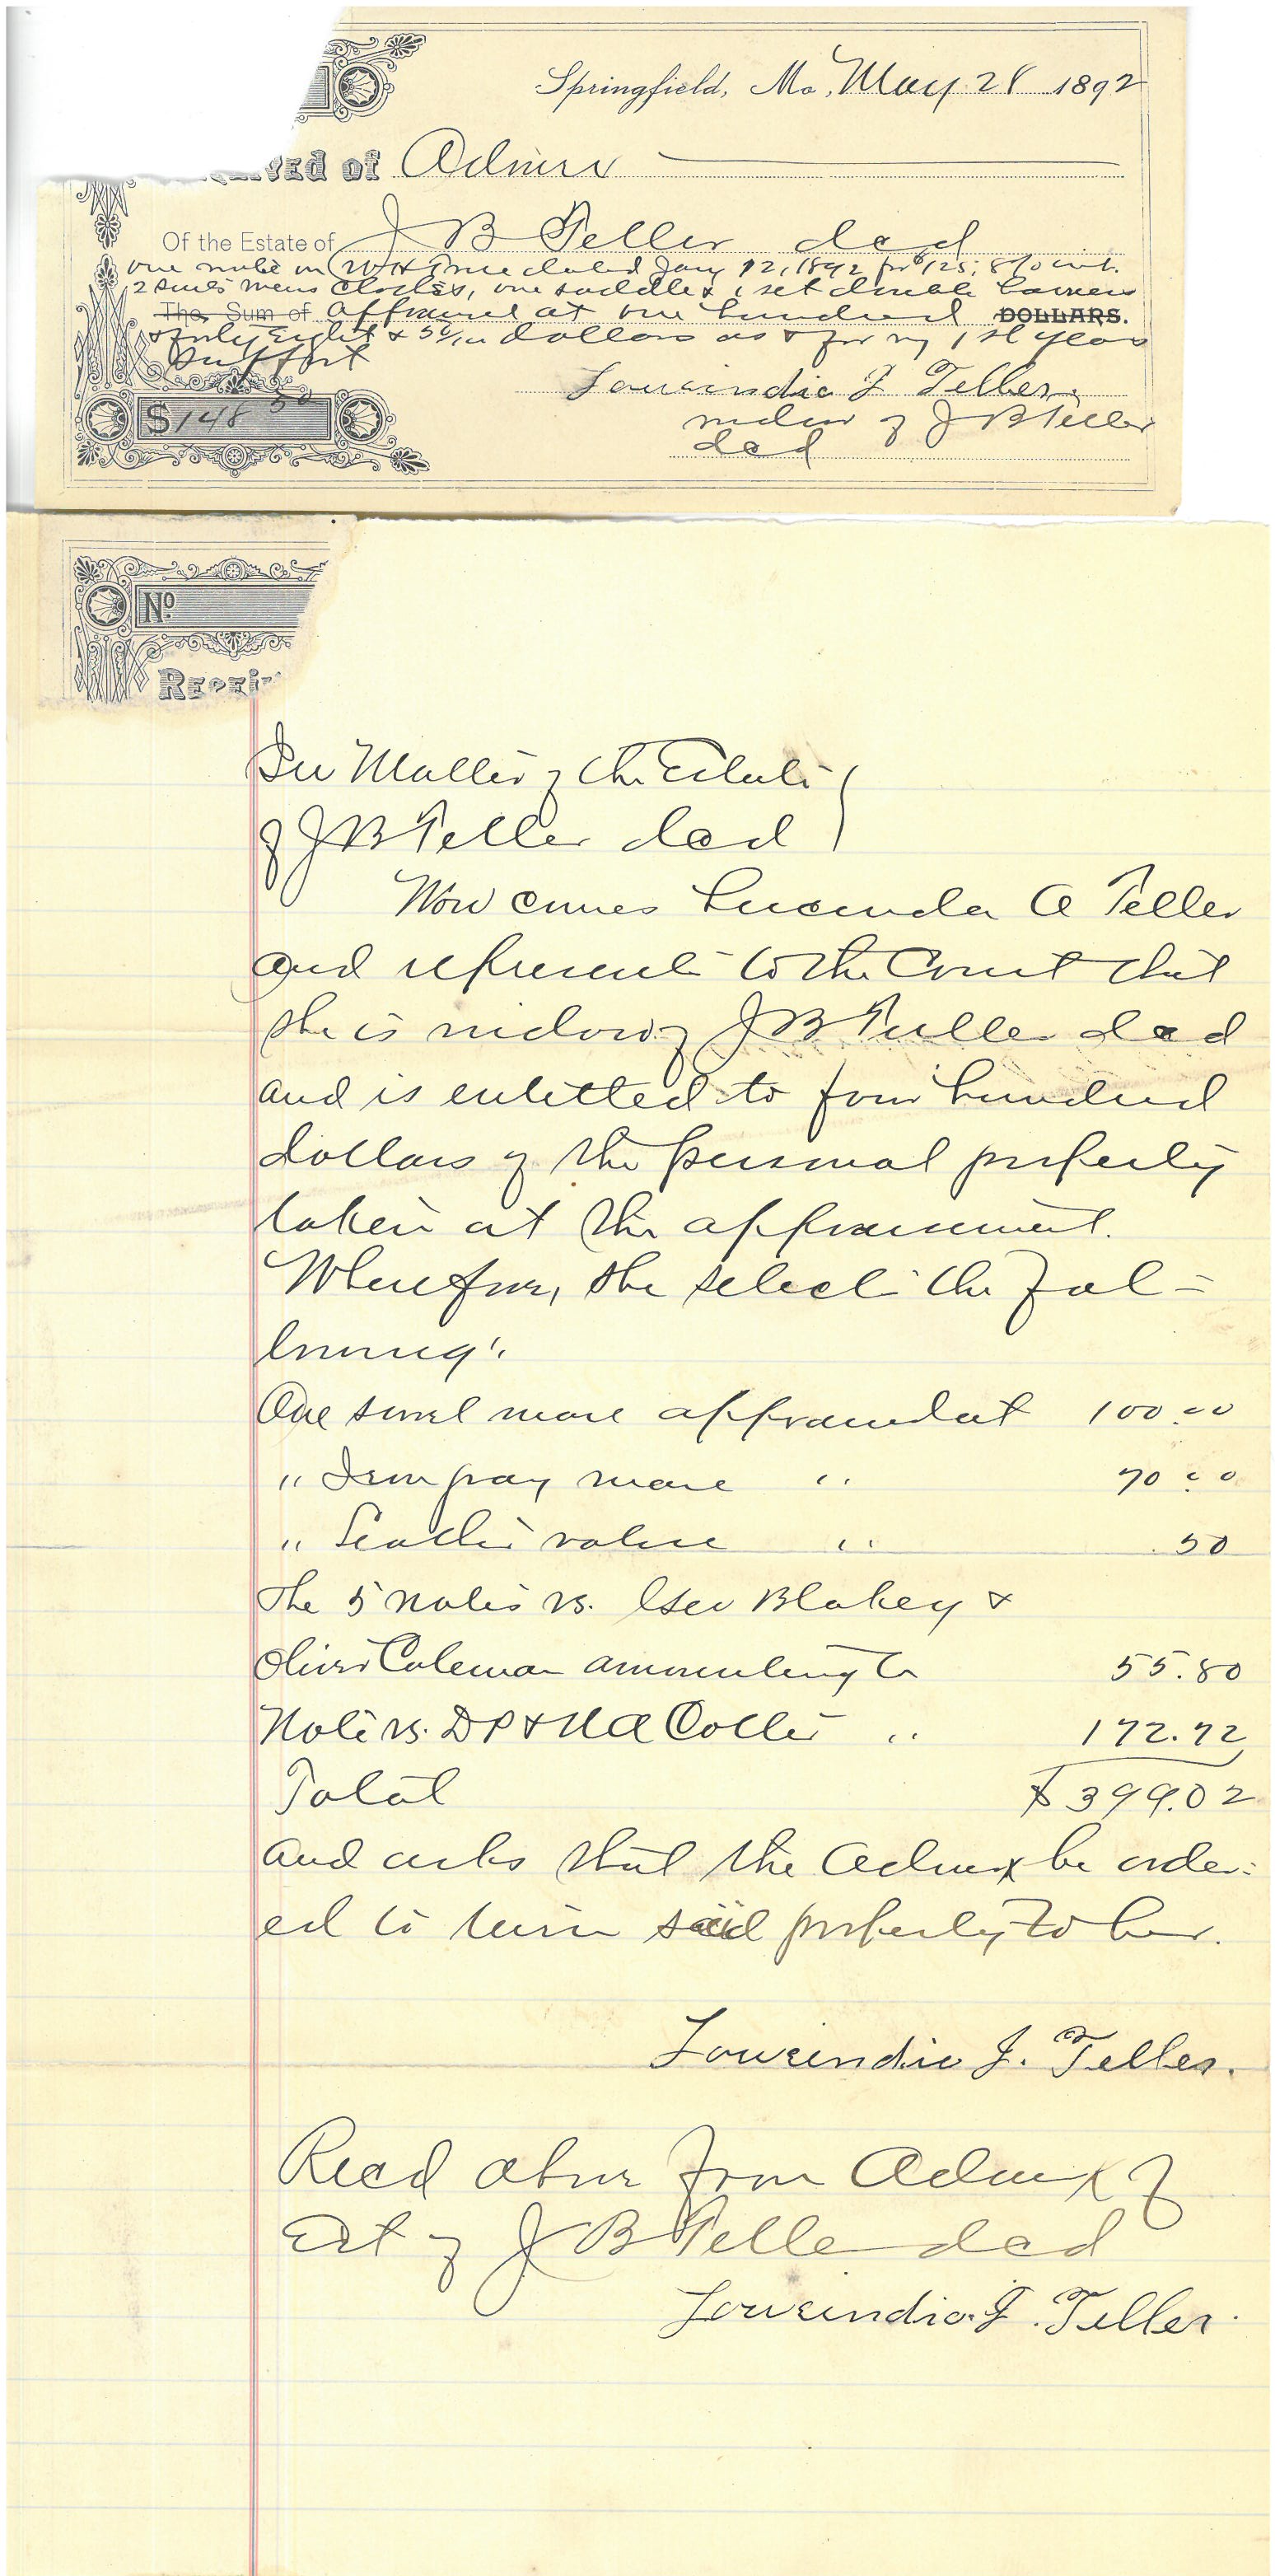 Springfield, Mo, May 28 1892
ived of Admrx
Of the Estate of J B Teller decd
one note on W H dated Jany 12, 1892 for $125, 8% int.
2 suits mens clothes, one saddle & 1 set double harness
The Sum of appraised at one hundred DOLLARS.
& forty Eight & 50/100 dollars as & for my 1st years
support
$148 50
Lourindia J Teller
widow of J B Teller
decd
No
Recei
In Matter of the Estate
of J B Teller decd
Now comes Lucinda A Teller
and represents to the Court that
she is widow of J B Teller decd
and is entitled to four hundred
dollars of the personal property
taken at the appraisement.
Wherefore, she selects the fol=
lowing:
One sorrel mare appraised at 100.00
" Iron gray mare " 70.00
" Leather valise " .50
The 5 notes vs. Geo Blakey &
Oliver Coleman amounting to 55.80
Note vs. D P & M A Coller " 172.72
Total $399.02
and asks that the Admrx be order=
ed to turn said property to her.
Lourindia J. Teller.
Recd above from Admrx of
Est of J B Teller decd
Lourindia J. Teller.